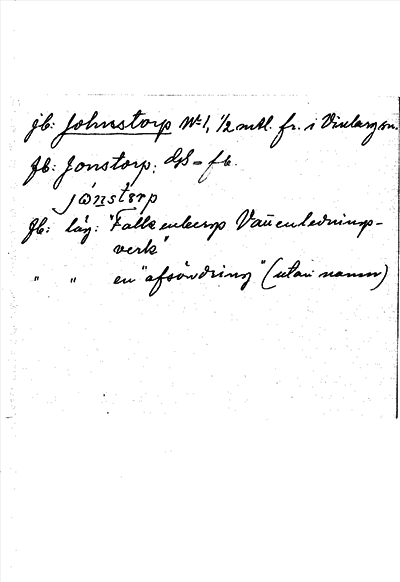 jb: Johnstorp № 1, 1/2 mtl. fr. i Vinbergs sn.
Jb: Jonstorp:
jònstǝrp
Jb: låg: "Falkenbergs Vattenlednings-
verk"
" " en "afsöndring" (utan namn)